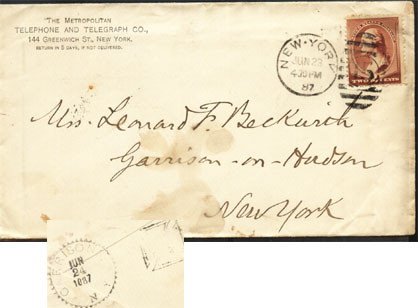 "THE METROPOLITAN
TELEPHONE AND TELEGRAPH CO.,
144 GREENWICH ST., NEW YORK.
RETURN IN 5 DAYS, IF NOT DELIVERED.
NEW-YORK
JUN 23
4 30 PM
87
TWO CENTS
Mrs. Leonard F. Beckwith
Garrison-on-Hudson
New York
JUN
24
1887
N.Y.